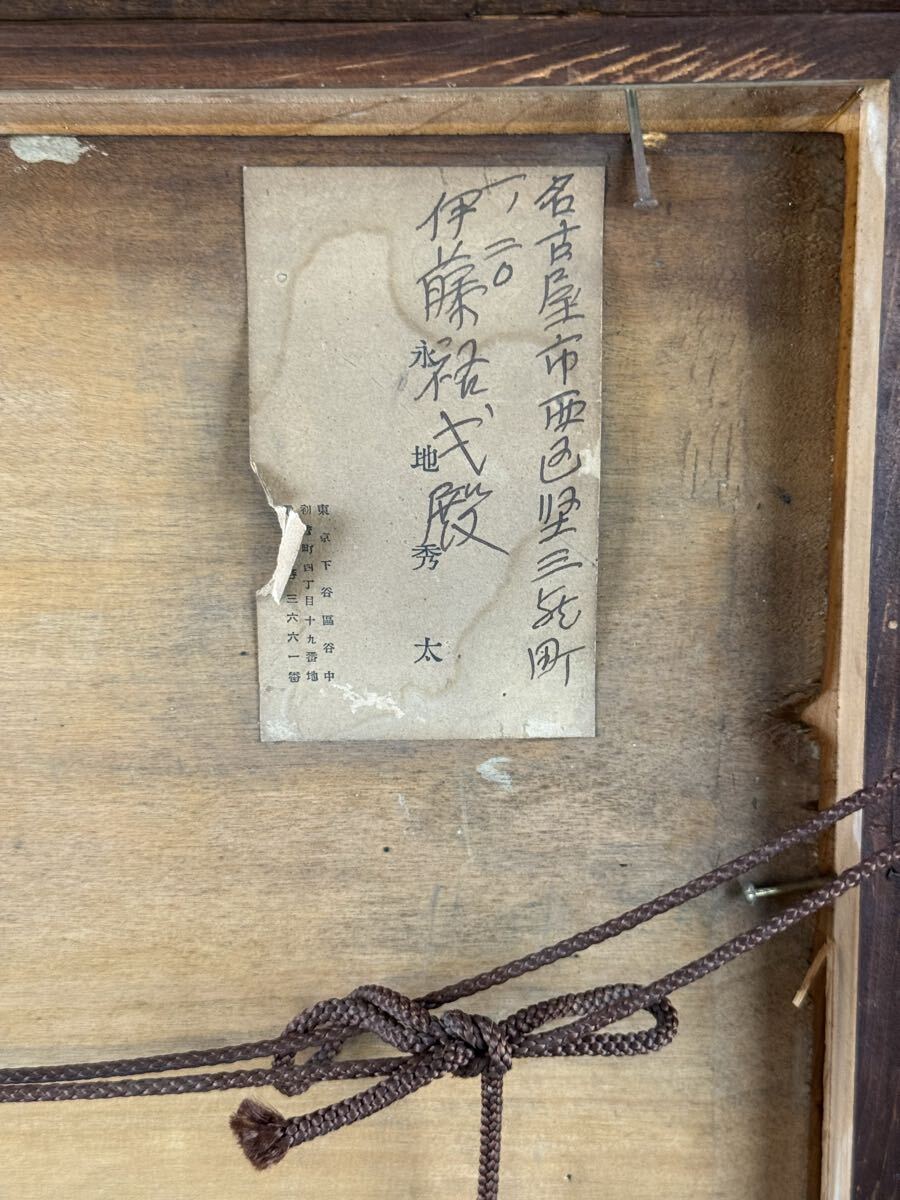 名古屋市西区堅三蔵町
一ノ二〇
伊藤裕弌殿
永地秀太
東京下谷區谷中
初音町四丁目十九番地
三六六一番